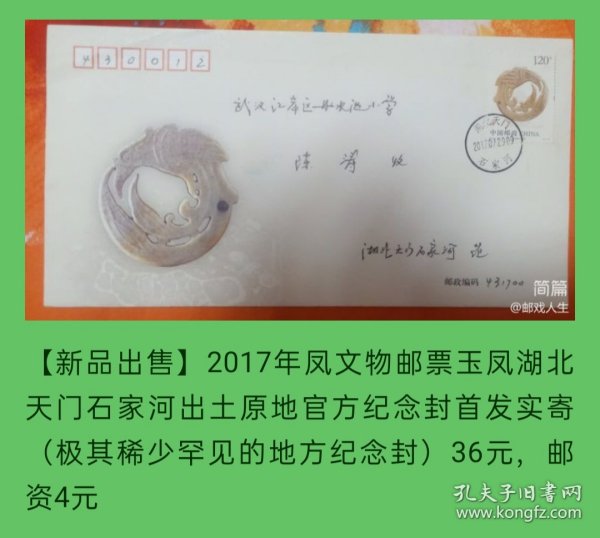 430012
120分
中国邮政 CHINA
武汉江岸区
小学
湖北天门
2017.07.23.09
石家河
陈
收
湖北天门石家河 范
邮政编码 431700
简篇
@邮戏人生
【新品出售】2017年凤文物邮票玉凤湖北
天门石家河出土原地官方纪念封首发实寄
（极其稀少罕见的地方纪念封）36元，邮
资4元
孔夫子旧书网
www.kongfz.com